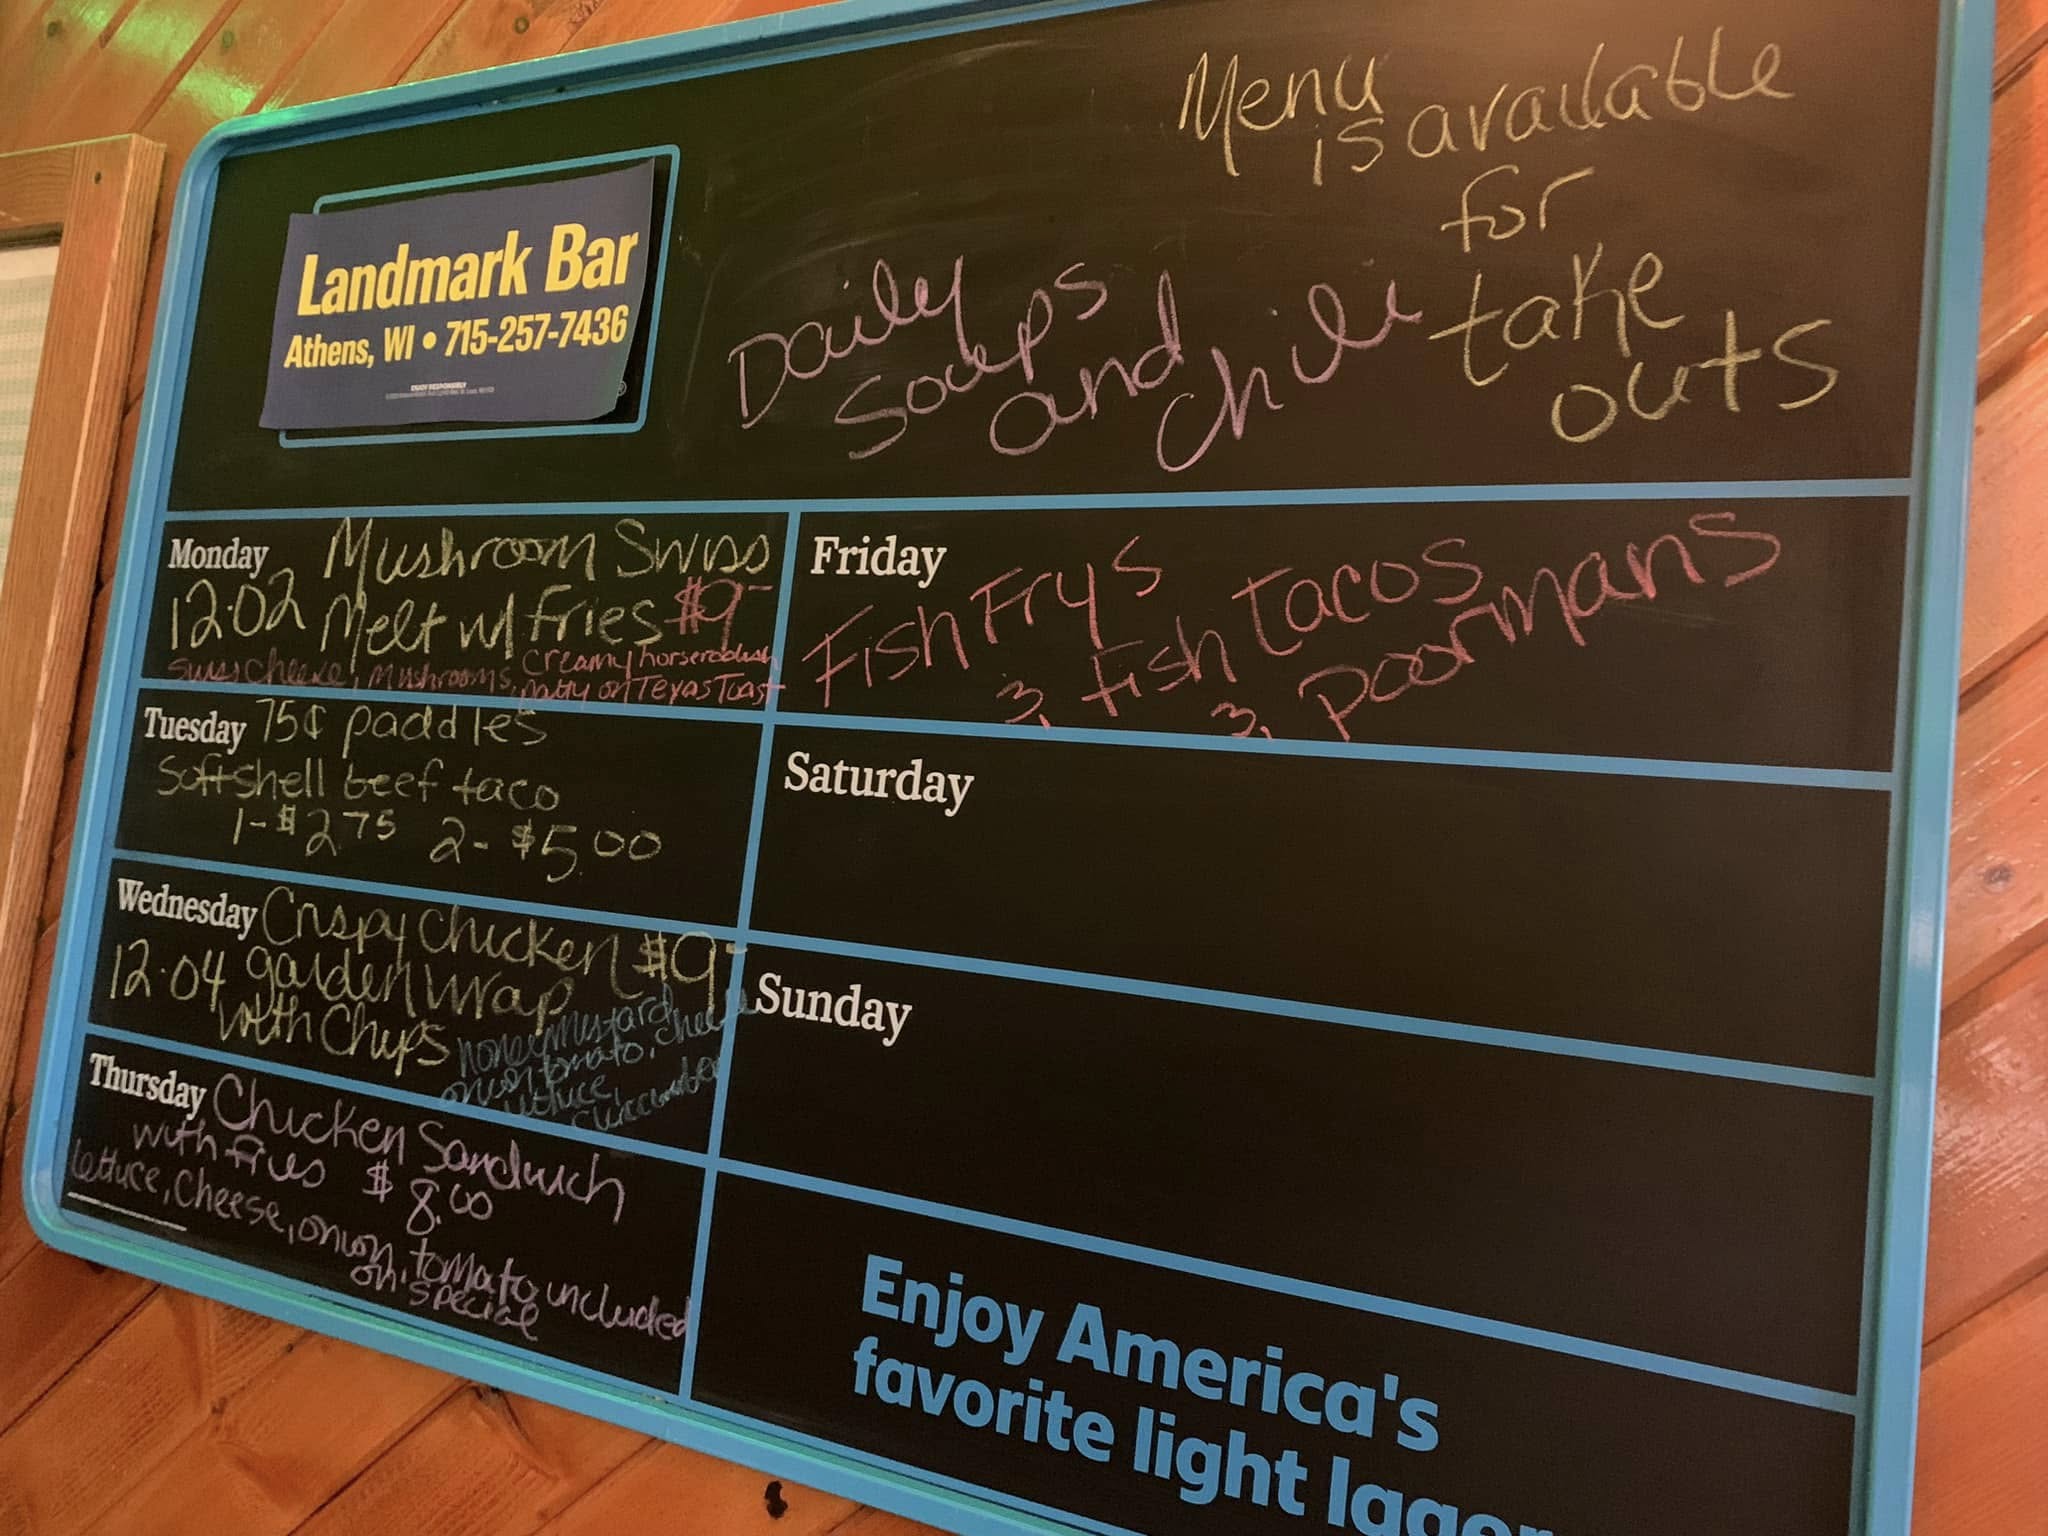 Menu
is available
for
take
outs
Landmark Bar
Athens, WI • 715-257-7436
ENJOY RESPONSIBLY
Daily
Soups
and
chili
Monday
12.02
Mushroom Swiss
Melt w/ fries $9-
Swiss cheese, mushrooms, creamy horseradish
patty on Texas Toast
Tuesday 75¢ paddles
Softshell beef taco
1- $2.75 2- $5.00
Wednesday Crispy Chicken $9-
12.04 garden wrap
with Chips
honey mustard
onion, tomato, cheese
lettuce,
cuccumber
Thursday Chicken Sandwich
with fries $8.00
Lettuce, cheese, onion, tomato included
on special
Friday
Fish Frys
3. Fish tacos
3. poormans
Saturday
Sunday
Enjoy America's
favorite light lager